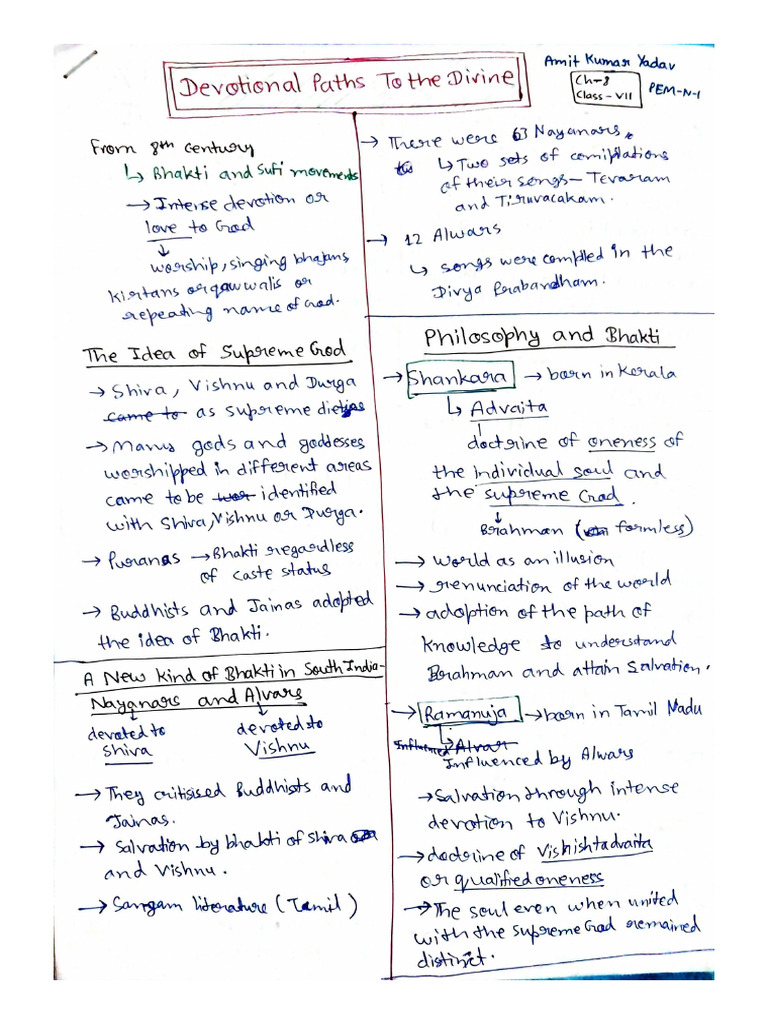 Devotional Paths To the Divine
Amit Kumar Yadav
Ch-8
Class-VII
PEM-N-1
From 8th century
↳ Bhakti and Sufi movements
→ Intense devotion or
love to God
↓
worship, singing bhajans,
kirtans or qawwalis or
repeating name of God.
The Idea of Supreme God
→ Shiva, Vishnu and Durga
came to as supreme dieties
→ Many gods and goddesses
worshipped in different areas
came to be wor identified
with Shiva, Vishnu or Durga.
→ Puranas → Bhakti regardless
of caste status
→ Buddhists and Jainas adopted
the idea of Bhakti.
A New kind of Bhakti in South India-
Nayanars and Alvars
devoted to
Shiva
devoted to
Vishnu
→ They critisised Buddhists and
Jainas.
→ Salvation by bhakti of Shiva
and Vishnu.
→ Sangam literature (Tamil)
→ There were 63 Nayanars.
↳ Two sets of comiplations
of their songs - Tevaram
and Tiruvacakam.
→ 12 Alwars
↳ songs were compiled in the
Divya Prabandham.
Philosophy and Bhakti
→ Shankara → born in Kerala
↳ Advaita
doctrine of oneness of
the individual soul and
the supreme God.
↓
Brahman (formless)
→ world as an illusion
→ renunciation of the world
→ adoption of the path of
knowledge to understand
Brahman and attain Salvation.
→ Ramanuja → born in Tamil Nadu
Influenced ↳ Alvar
Influenced by Alwars
→ Salvation through intense
devotion to Vishnu.
→ doctrine of Vishishtadvaita
or qualified oneness
→ The soul even when united
with the Supreme God remained
distinct.